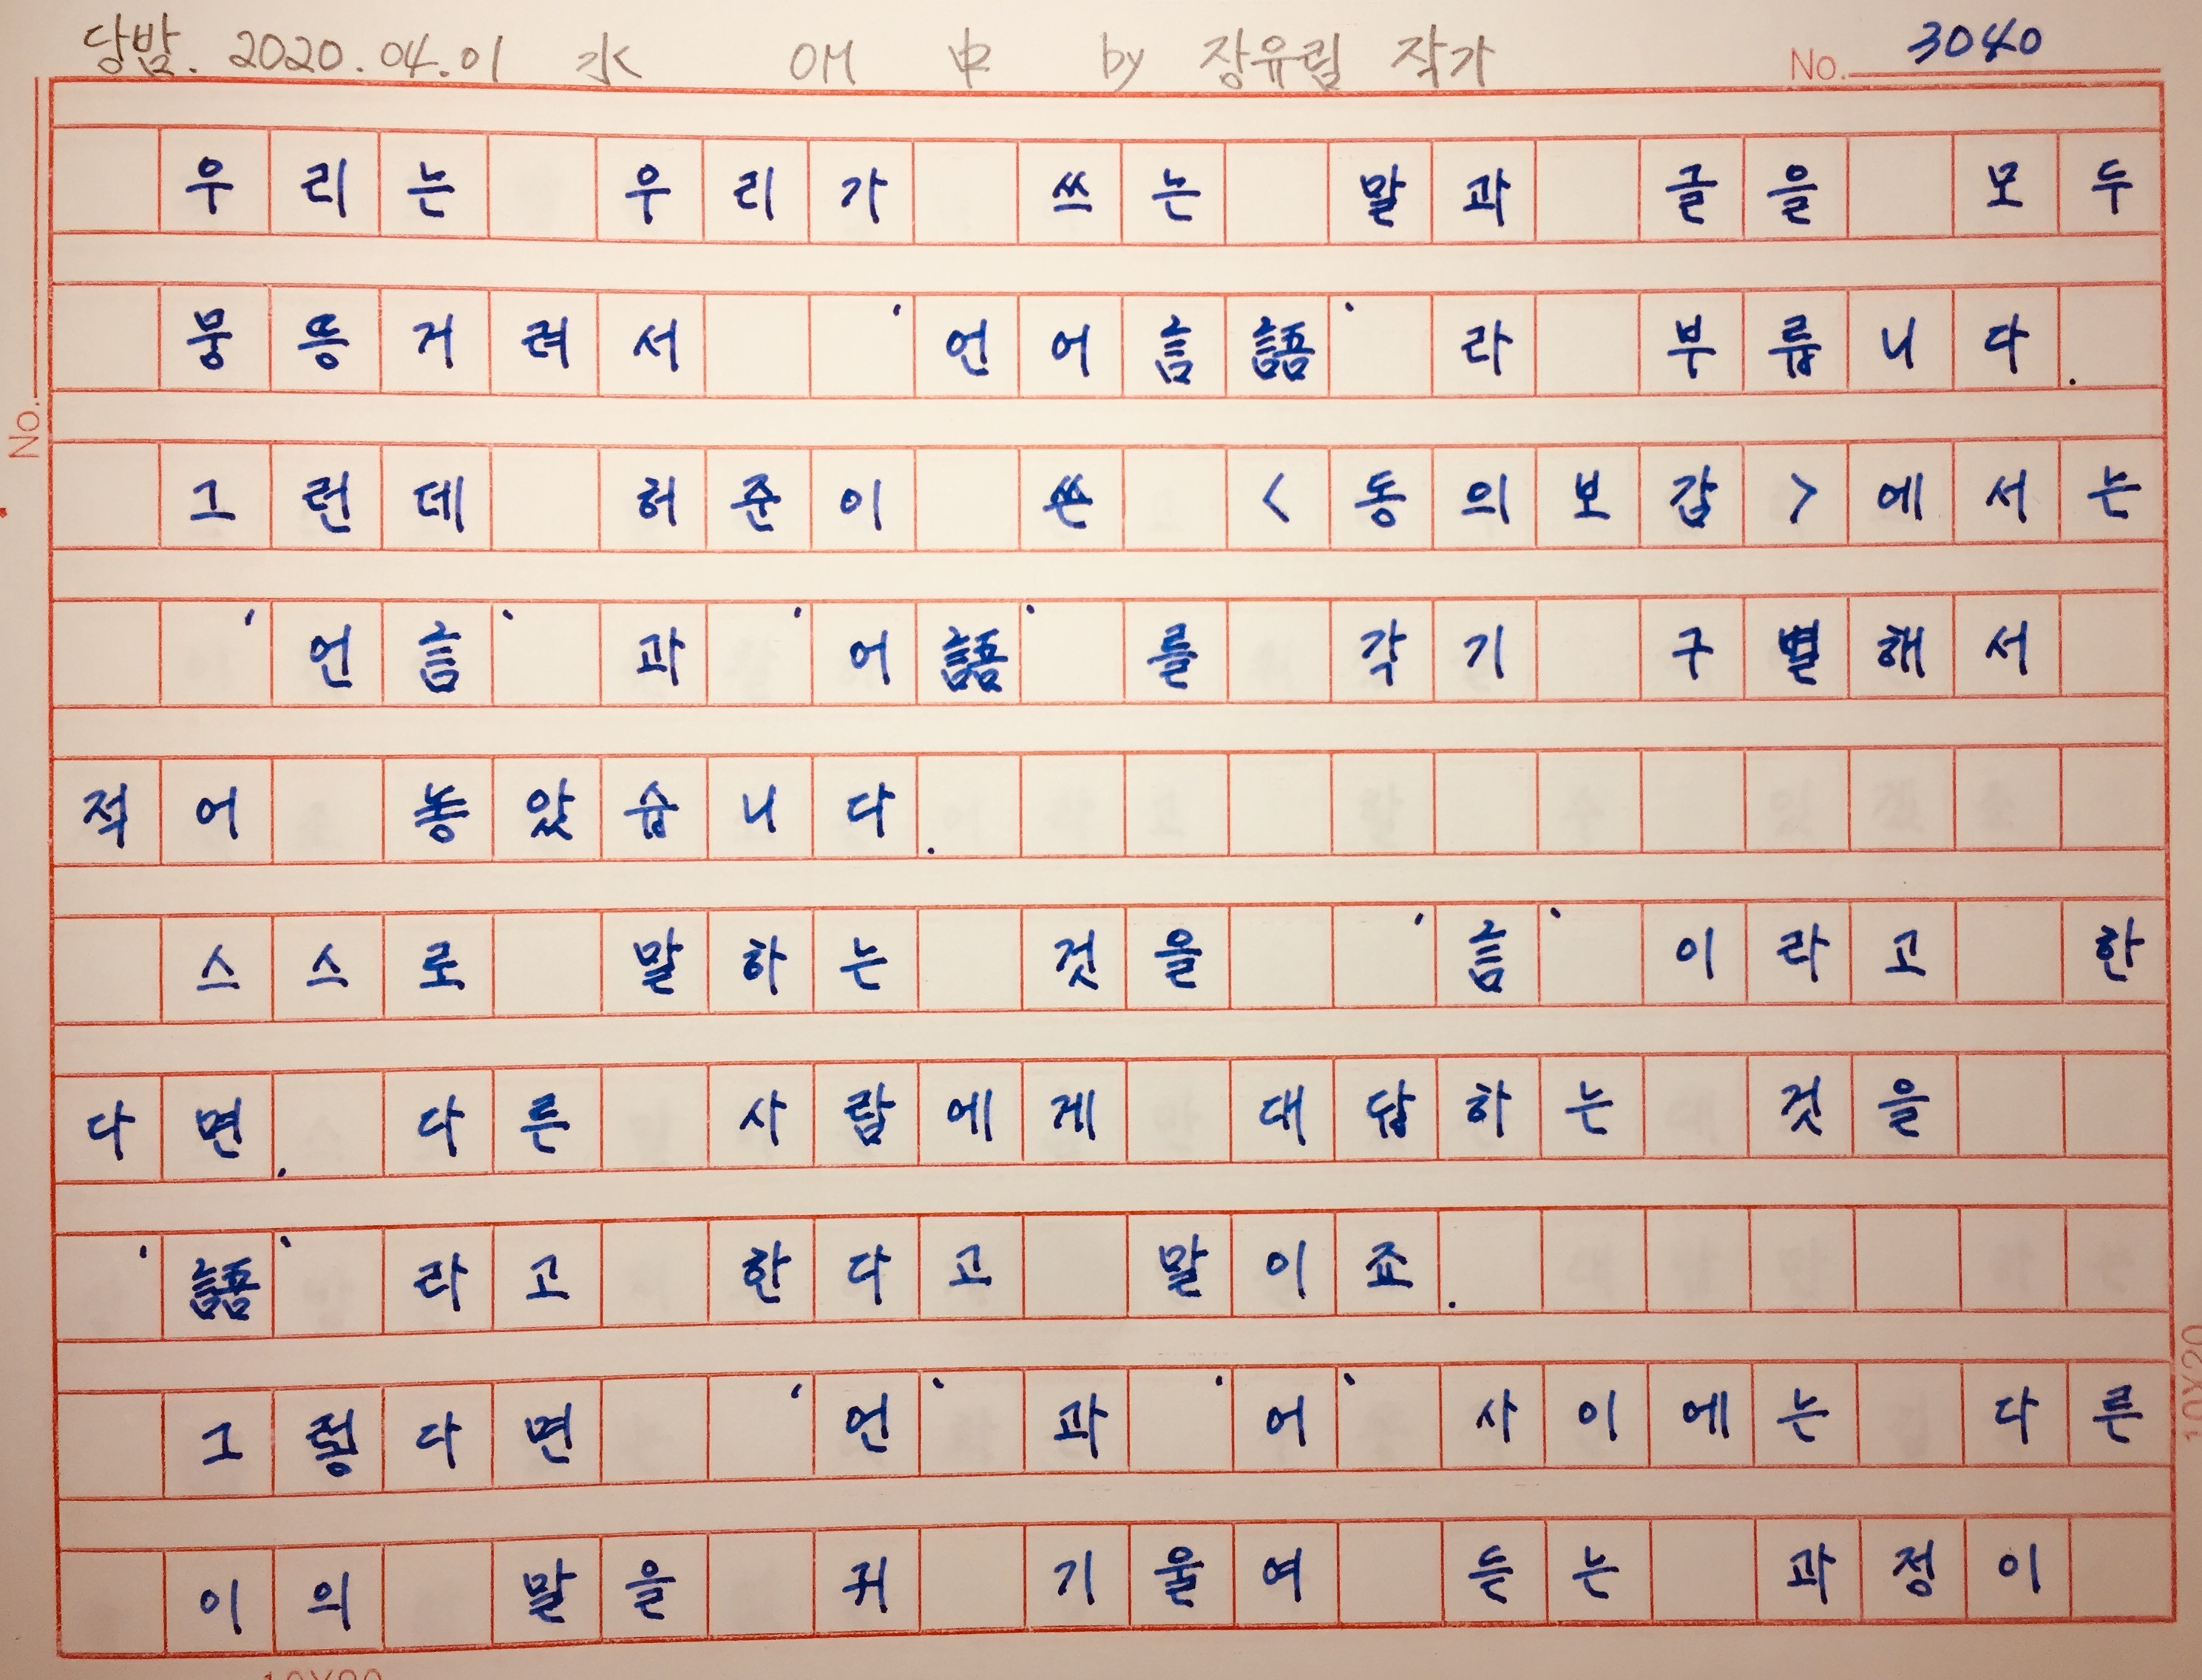 당밤. 2020.04.01 水 OM 中 by 장유림 작가 No. 3040
우리는 우리가 쓰는 말과 글을 모두
뭉뚱거려서 '언어言語'라 부릅니다.
그런데 허준이 쓴 <동의보감>에서는
'언言'과 '어語'를 각기 구별해서
적어 놓았습니다.
스스로 말하는 것을 '言'이라고 한
다면. 다른 사람에게 대답하는 것을
'語'라고 한다고 말이죠.
그렇다면 '언'과 '어' 사이에는 다른
이의 말을 귀 기울여 듣는 과정이
No.
10X20
10X20